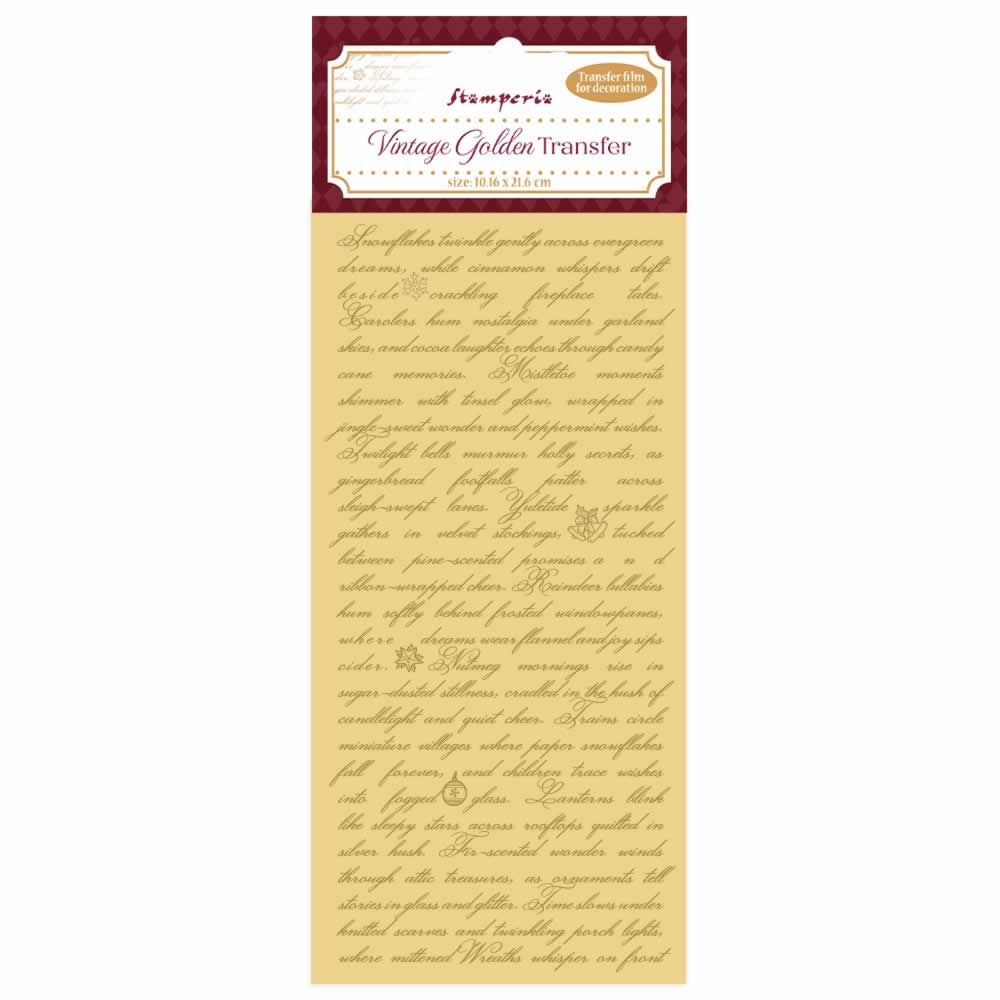 Stamperia
Transfer film
for decoration
Vintage Golden Transfer
size: 10.16 x 21.6 cm
Snowflakes twinkle gently across evergreen
dreams, while cinnamon whispers drift
beside crackling fireplace tales.
Carolers hum nostalgia under garland
skies, and cocoa laughter echoes through candy
cane memories. Mistletoe moments
shimmer with tinsel glow, wrapped in
jingle-sweet wonder and peppermint wishes.
Twilight bells murmur holly secrets, as
gingerbread footfalls patter across
sleigh-swept lanes. Yuletide sparkle
gathers in velvet stockings, tucked
between pine-scented promises a n d
ribbon-wrapped cheer. Reindeer lullabies
hum softly behind frosted windowpanes,
where dreams wear flannel and joy sips
cider. Nutmeg mornings rise in
sugar-dusted stillness, cradled in the hush of
candlelight and quiet cheer. Trains circle
miniature villages where paper snowflakes
fall forever, and children trace wishes
into fogged glass. Lanterns blink
like sleepy stars across rooftops quilted in
silver hush. Fir-scented wonder winds
through attic treasures, as ornaments tell
stories in glass and glitter. Time slows under
knitted scarves and twinkling porch lights,
where mittened Wreaths whisper on front